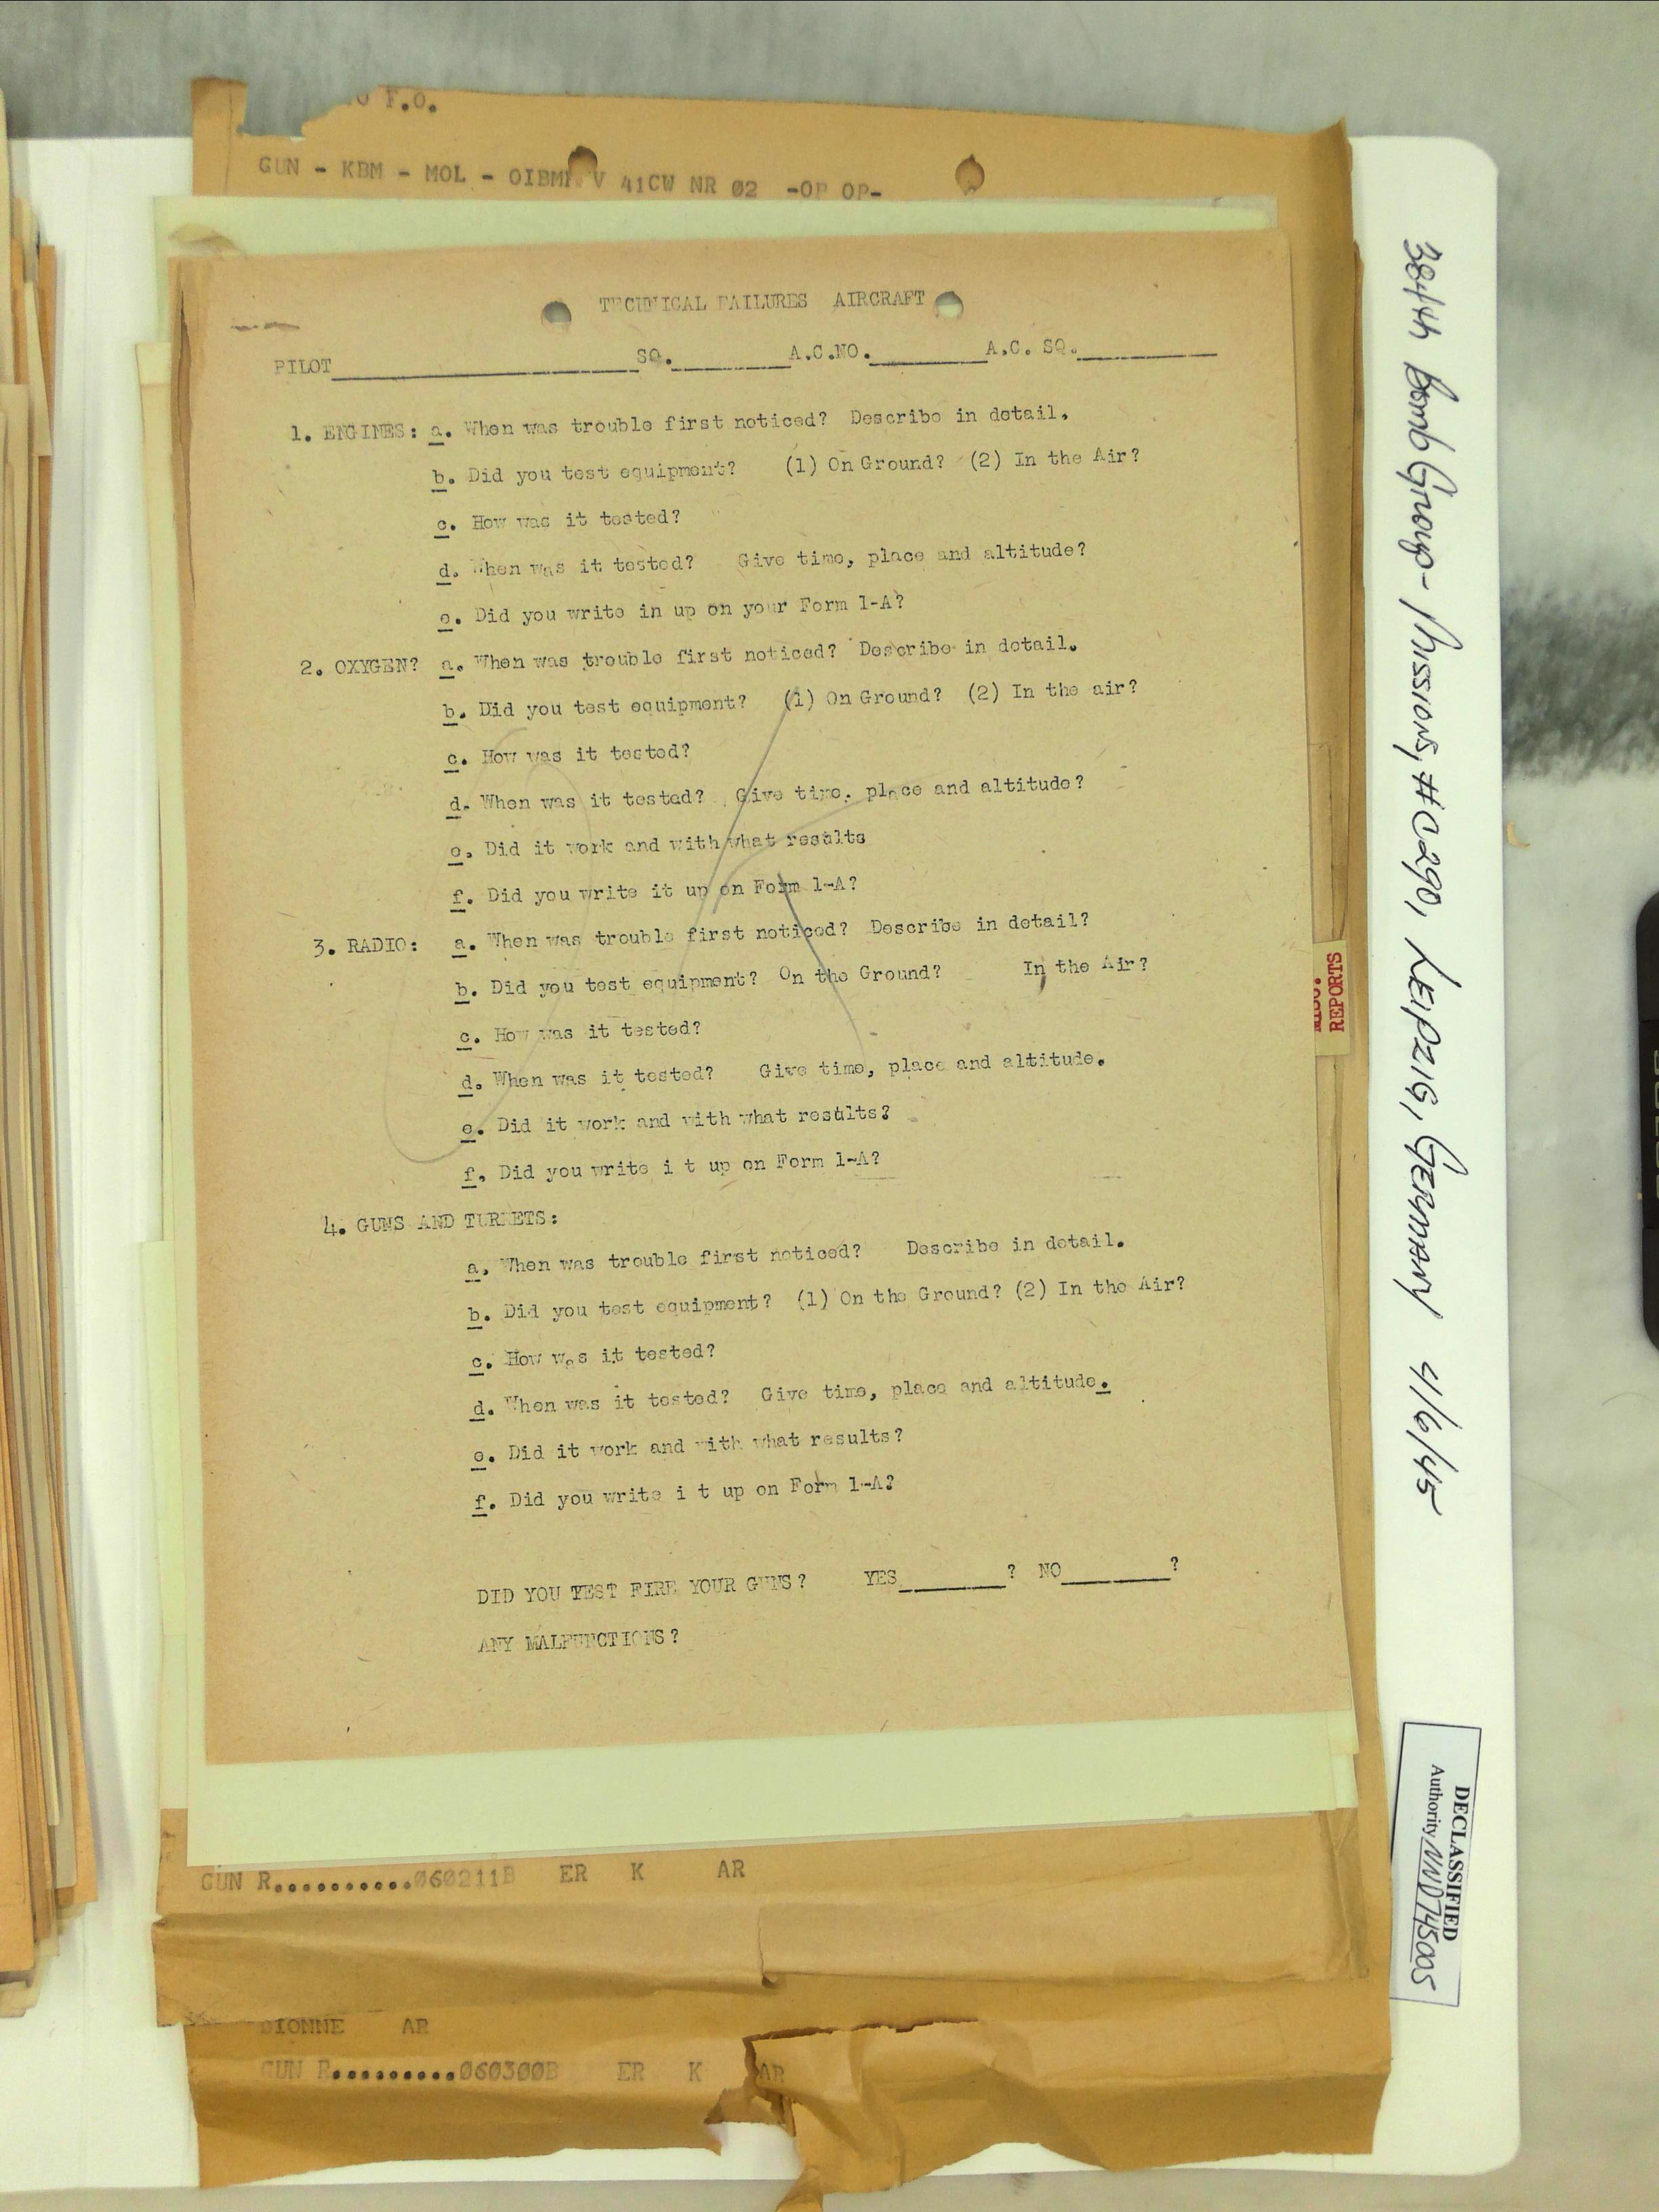 F.O.
GUN - KBM - MOL - OIBMH V 41CW NR 02 -OP OP-
TECHNICAL FAILURES AIRCRAFT
PILOT____________SQ.______A.C.NO.______A.C. SQ.______
1. ENGINES: a. When was trouble first noticed? Describe in detail.
b. Did you test equipment? (1) On Ground? (2) In the Air?
c. How was it tested?
d. When was it tested? Give time, place and altitude?
e. Did you write in up on your Form 1-A?
2. OXYGEN? a. When was trouble first noticed? Describe in detail.
b. Did you test equipment? (1) On Ground? (2) In the air?
c. How was it tested?
d. When was it tested? Give time, place and altitude?
e. Did it work and with what results
f. Did you write it up on Form 1-A?
3. RADIO: a. When was trouble first noticed? Describe in detail?
b. Did you test equipment? On the Ground? In the Air?
c. How was it tested?
d. When was it tested? Give time, place and altitude.
e. Did it work and with what results?
f. Did you write i t up on Form 1-A?
4. GUNS AND TURRETS:
a. When was trouble first noticed? Describe in detail.
b. Did you test equipment? (1) On the Ground? (2) In the Air?
c. How was it tested?
d. When was it tested? Give time, place and altitude.
e. Did it work and with what results?
f. Did you write i t up on Form 1-A?
DID YOU TEST FIRE YOUR GUNS? YES______? NO______?
ANY MALFUNCTIONS?
GUN R..........060211B ER K AR
DIONNE AR
GUN R..........060300B ER K AR
MISC.
REPORTS
384th Bomb Group - Missions, #C290, LEIPZIG, GERMANY 4/6/45
DECLASSIFIED
Authority NND745005